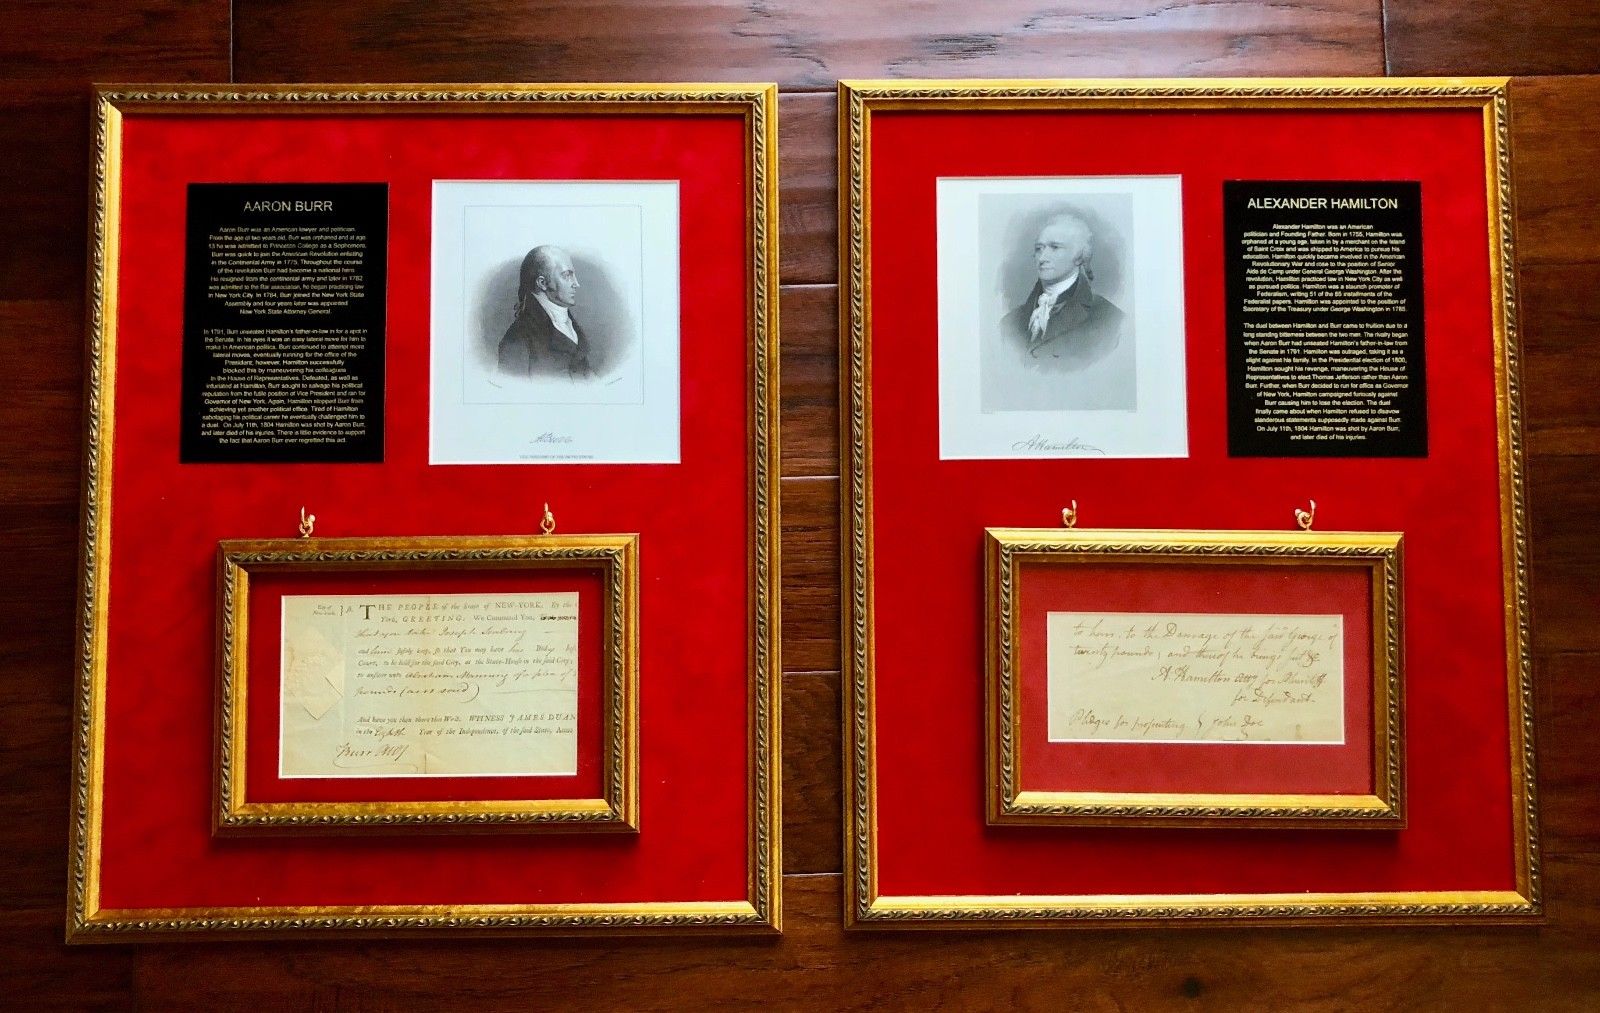 AARON BURR
Aaron Burr was an American lawyer and politician.
From the age of two years old, Burr was orphaned and at age
13 he was admitted to Princeton College as a Sophomore.
Burr was quick to join the American Revolution enlisting
in the Continental Army in 1775. Throughout the course
of the revolution Burr had become a national hero.
He resigned from the continental army and later in 1782
was admitted to the Bar association, he began practicing law
in New York City. In 1784, Burr joined the New York State
Assembly and four years later was appointed
New York State Attorney General.
In 1791, Burr unseated Hamilton's father-in-law in for a spot in
the Senate. In his eyes it was an easy lateral move for him to
make in American politics. Burr continued to attempt more
lateral moves, eventually running for the office of the
President; however, Hamilton successfully
blocked this by maneuvering his colleagues
in the House of Representatives. Defeated, as well as
infuriated at Hamilton, Burr sought to salvage his political
reputation from the futile position of Vice President and ran for
Governor of New York. Again, Hamilton stopped Burr from
achieving yet another political office. Tired of Hamilton
sabotaging his political career he eventually challenged him to
a duel. On July 11th, 1804 Hamilton was shot by Aaron Burr,
and later died of his injuries. There is little evidence to support
the fact that Aaron Burr ever regretted this act.
A Burr
VICE PRESIDENT OF THE UNITED STATES
City of
New-York,
} ss.
THE PEOPLE of the State of NEW-YORK, By the
York, GREETING: We Command You,
that you take Joseph
and him safely keep, so that You may have his Body
Court, to be held for the said City, at the State-House in the said City,
to answer unto Abraham Manning of a plea of
pounds
And have you then there this Writ. WITNESS JAMES DUAN
in the Eighth Year of the Independence, of the said State, Anno
Burr Atty
A Hamilton
ALEXANDER HAMILTON
Alexander Hamilton was an American
politician and Founding Father. Born in 1755, Hamilton was
orphaned at a young age, taken in by a merchant on the Island
of Saint Croix and was shipped to America to pursue his
education. Hamilton quickly became involved in the American
Revolutionary War and rose to the position of Senior
Aide de Camp under General George Washington. After the
revolution, Hamilton practiced law in New York City as well
as pursued politics. Hamilton was a staunch promoter of
Federalism, writing 51 of the 85 installments of the
Federalist papers. Hamilton was appointed to the position of
Secretary of the Treasury under George Washington in 1785.
The duel between Hamilton and Burr came to fruition due to a
long standing bitterness between the two men. The rivalry began
when Aaron Burr had unseated Hamilton's father-in-law from
the Senate in 1791. Hamilton was outraged, taking it as a
slight against his family. In the Presidential election of 1800,
Hamilton sought his revenge, maneuvering the House of
Representatives to elect Thomas Jefferson rather than Aaron
Burr. Further, when Burr decided to run for office as Governor
of New York, Hamilton campaigned furiously against
Burr causing him to lose the election. The duel
finally came about when Hamilton refused to disavow
slanderous statements supposedly made against Burr.
On July 11th, 1804 Hamilton was shot by Aaron Burr,
and later died of his injuries.
to him, to the Damage of the said George of
twenty pounds; and thereof he brings suit &c
A. Hamilton atty for Plaintiff
for Defendant.
Pledges for prosecuting } John Doe